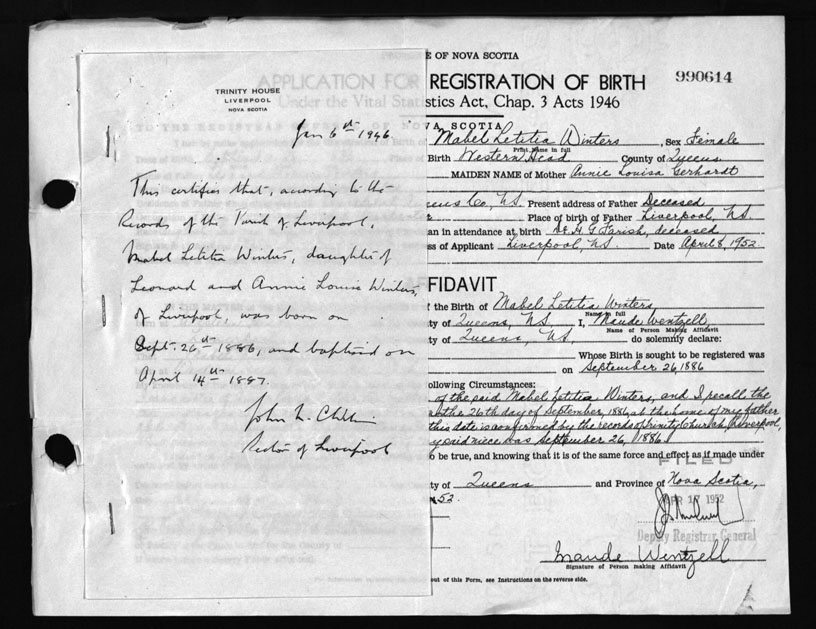 TRINITY HOUSE
LIVERPOOL
NOVA SCOTIA
Jan 6th 1946
This certifies that, according to the
Records of the Parish of Liverpool,
Mabel Letitia Winters, daughter of
Leonard and Annie Louise Winters,
of Liverpool, was born on
Sept. 26th 1886, and baptised on
April 14th 1887.
John
Rector of Liverpool
E OF NOVA SCOTIA
APPLICATION FOR REGISTRATION OF BIRTH
990614
Under the Vital Statistics Act, Chap. 3 Acts 1946
VA SCOTIA
Mabel Letitia Winters, Sex Female
Print Name in full
Birth Western Head County of Queens
MAIDEN NAME of Mother Annie Louisa Gerhardt
eens Co, N.S. Present address of Father Deceased
Place of birth of Father Liverpool, N.S.
an in attendance at birth Dr. H G Farish, deceased
ss of Applicant Liverpool, N.S. Date April 8, 1952
FIDAVIT
f the Birth of Mabel Letitia Winters,
Name in full
ty of Queens, N.S. I, Maude Wentzell,
Name of Person Making Affidavit
ty of Queens, N.S. do solemnly declare:
Whose Birth is sought to be registered was
on September 26, 1886
ollowing Circumstances:
of the said Mabel Letitia Winters, and I recall the
the 26th day of September, 1886, at the home of my father
this date is confirmed by the records of Trinity Church, Liverpool,
said niece was September 26, 1886.
o be true, and knowing that it is of the same force and effect as if made under
FILED
ty of Queens and Province of Nova Scotia,
52.
APR 17 1952
Deputy Registrar General
Maude Wentzell
Signature of Person making Affidavit
out of this Form, see Instructions on the reverse side.